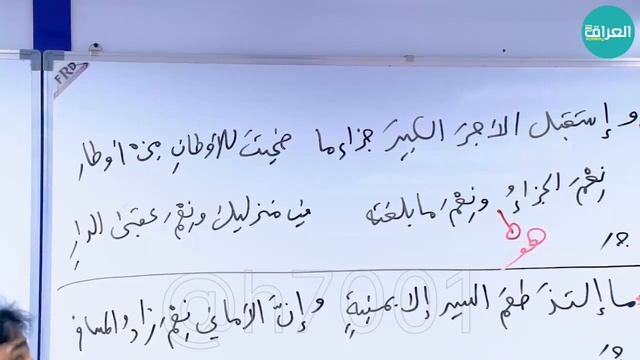 العراقة
FRD
وإستقبل الأجرَ الكبيرَ جزاءما ضحيتَ للأوطانِ من أوطار
نِعْمَ الجزاءُ ونِعْمَ ما بلغته في منزليك ونِعْمَ عقبى الدارِ
هو
ما إلتذ طعمَ السير إلا بمنيةٍ وإنَّ الأماني نِعْمَ زادُ المسافر
@h7001